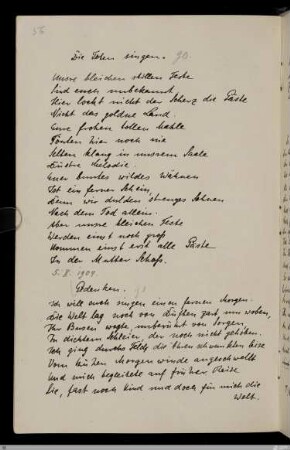 56
Die Toten singen. 90
Unsre bleichen stillen Feste
Sind euch unbekannt,
Hier lockt nicht der Scherz die Gäste
Nicht das goldne Land.
Eure frohen tollen Mahle
Tönten hier noch nie
Selten klang in unserm Saale
Düstre Melodie.
Euer buntes wildes Wähnen
Ist ein ferner Schein,
Denn wir dulden strenges Sehnen
Nach dem Tod allein.
Aber unsre bleichen Feste
Werden einst noch groß
Kommen einst erst alle Gäste
In der Mutter Schoß.
5. X. 1909.
Gedenken. 91
Ich will euch singen einen fernen Morgen.
Die Welt lag noch von Düften zart umwoben,
Ihr Busen wogte unberührt von Sorgen,
In dichtem Schleier der noch nicht gehoben.
Ich ging durchs Feld, die Ähren schwankten leise
Vom kühlen Morgenwinde angeschwellt
Und mich begleitete auf früher Reise
Sie, fast noch Kind und doch für mich die
Welt.